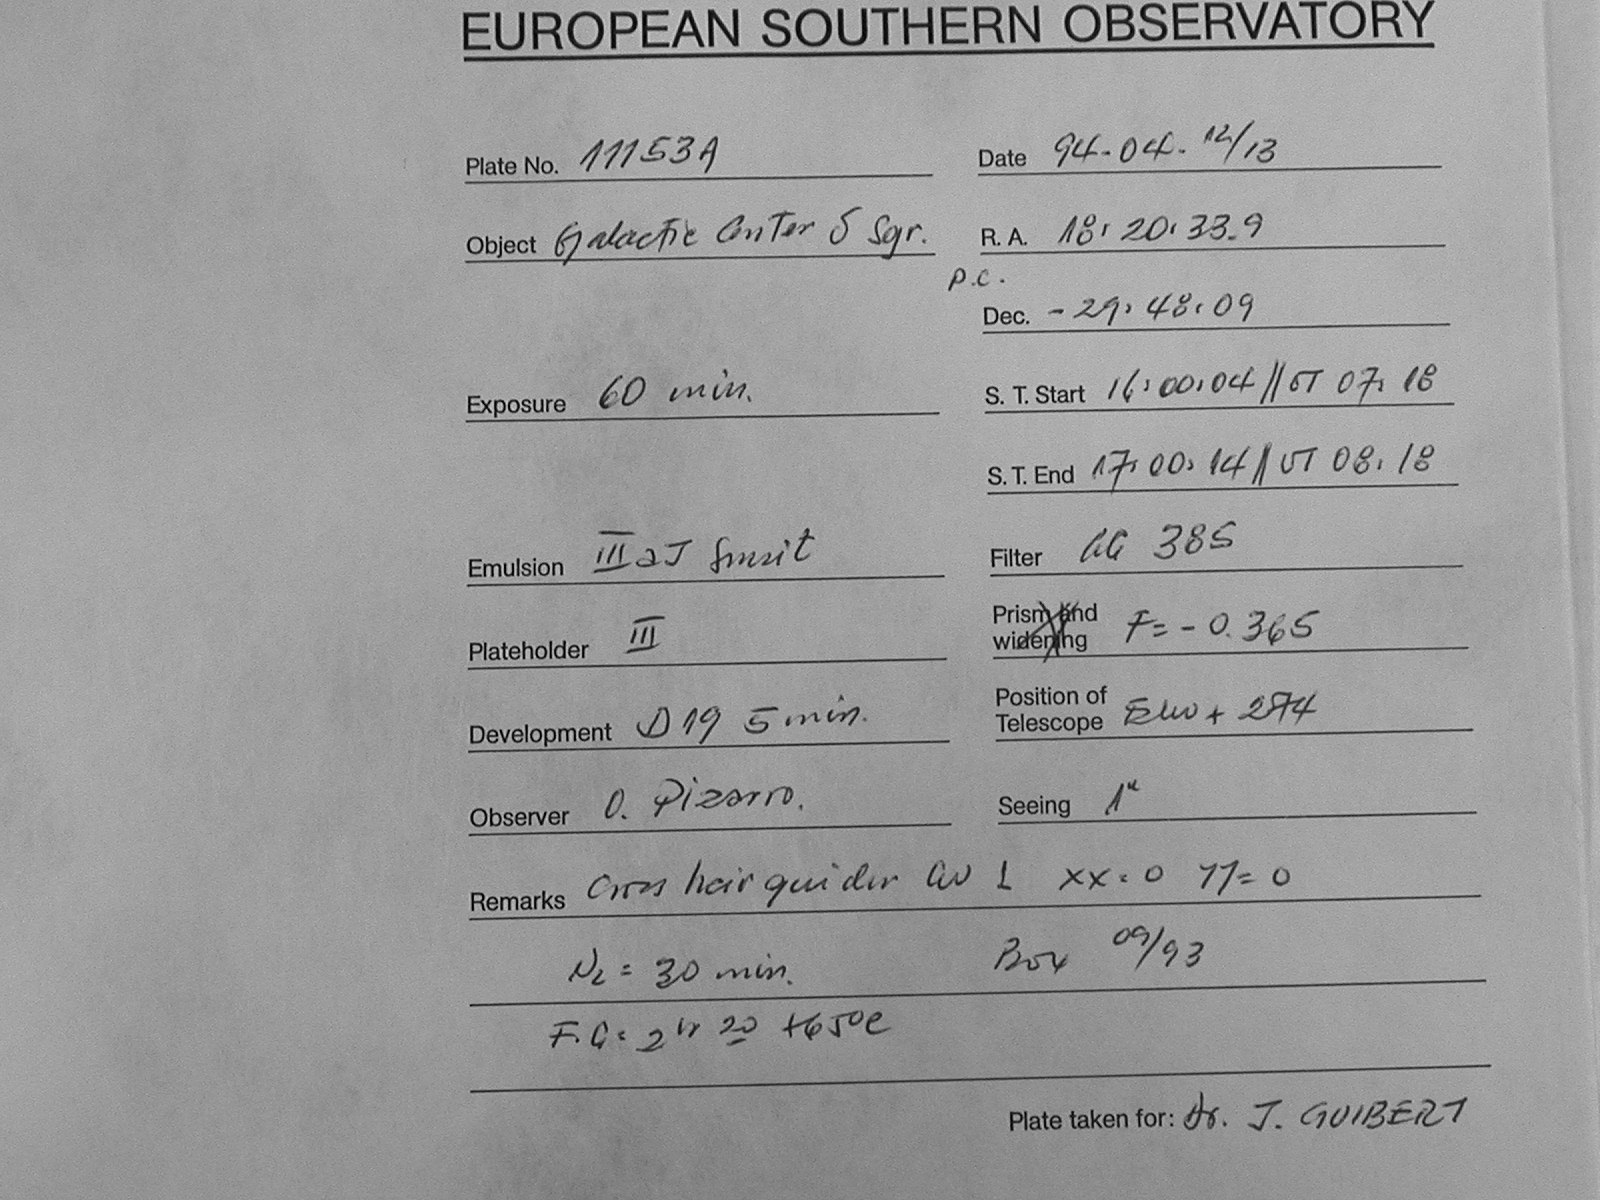 EUROPEAN SOUTHERN OBSERVATORY
Plate No. 11153A
Date 94-04-12/13
Object Galactic Center δ Sgr.
R. A. 18: 20: 33.9
p.c.
Dec. -29: 48: 09
Exposure 60 min.
S. T. Start 16: 00: 04 // UT 07: 18
S. T. End 17: 00: 14 // UT 08: 18
Emulsion III aJ
Filter GG 385
Prism and widening F = - 0.365
Plateholder III
Position of Telescope + 2874
Development D19 5 min.
Observer O. Pizarro.
Seeing 1"
Remarks Cross hair guider XX = 0 YY = 0
N2 = 30 min. Box 09/93
F.G = 2hr 20 +65°C
Plate taken for: Dr. J. GUIBERT